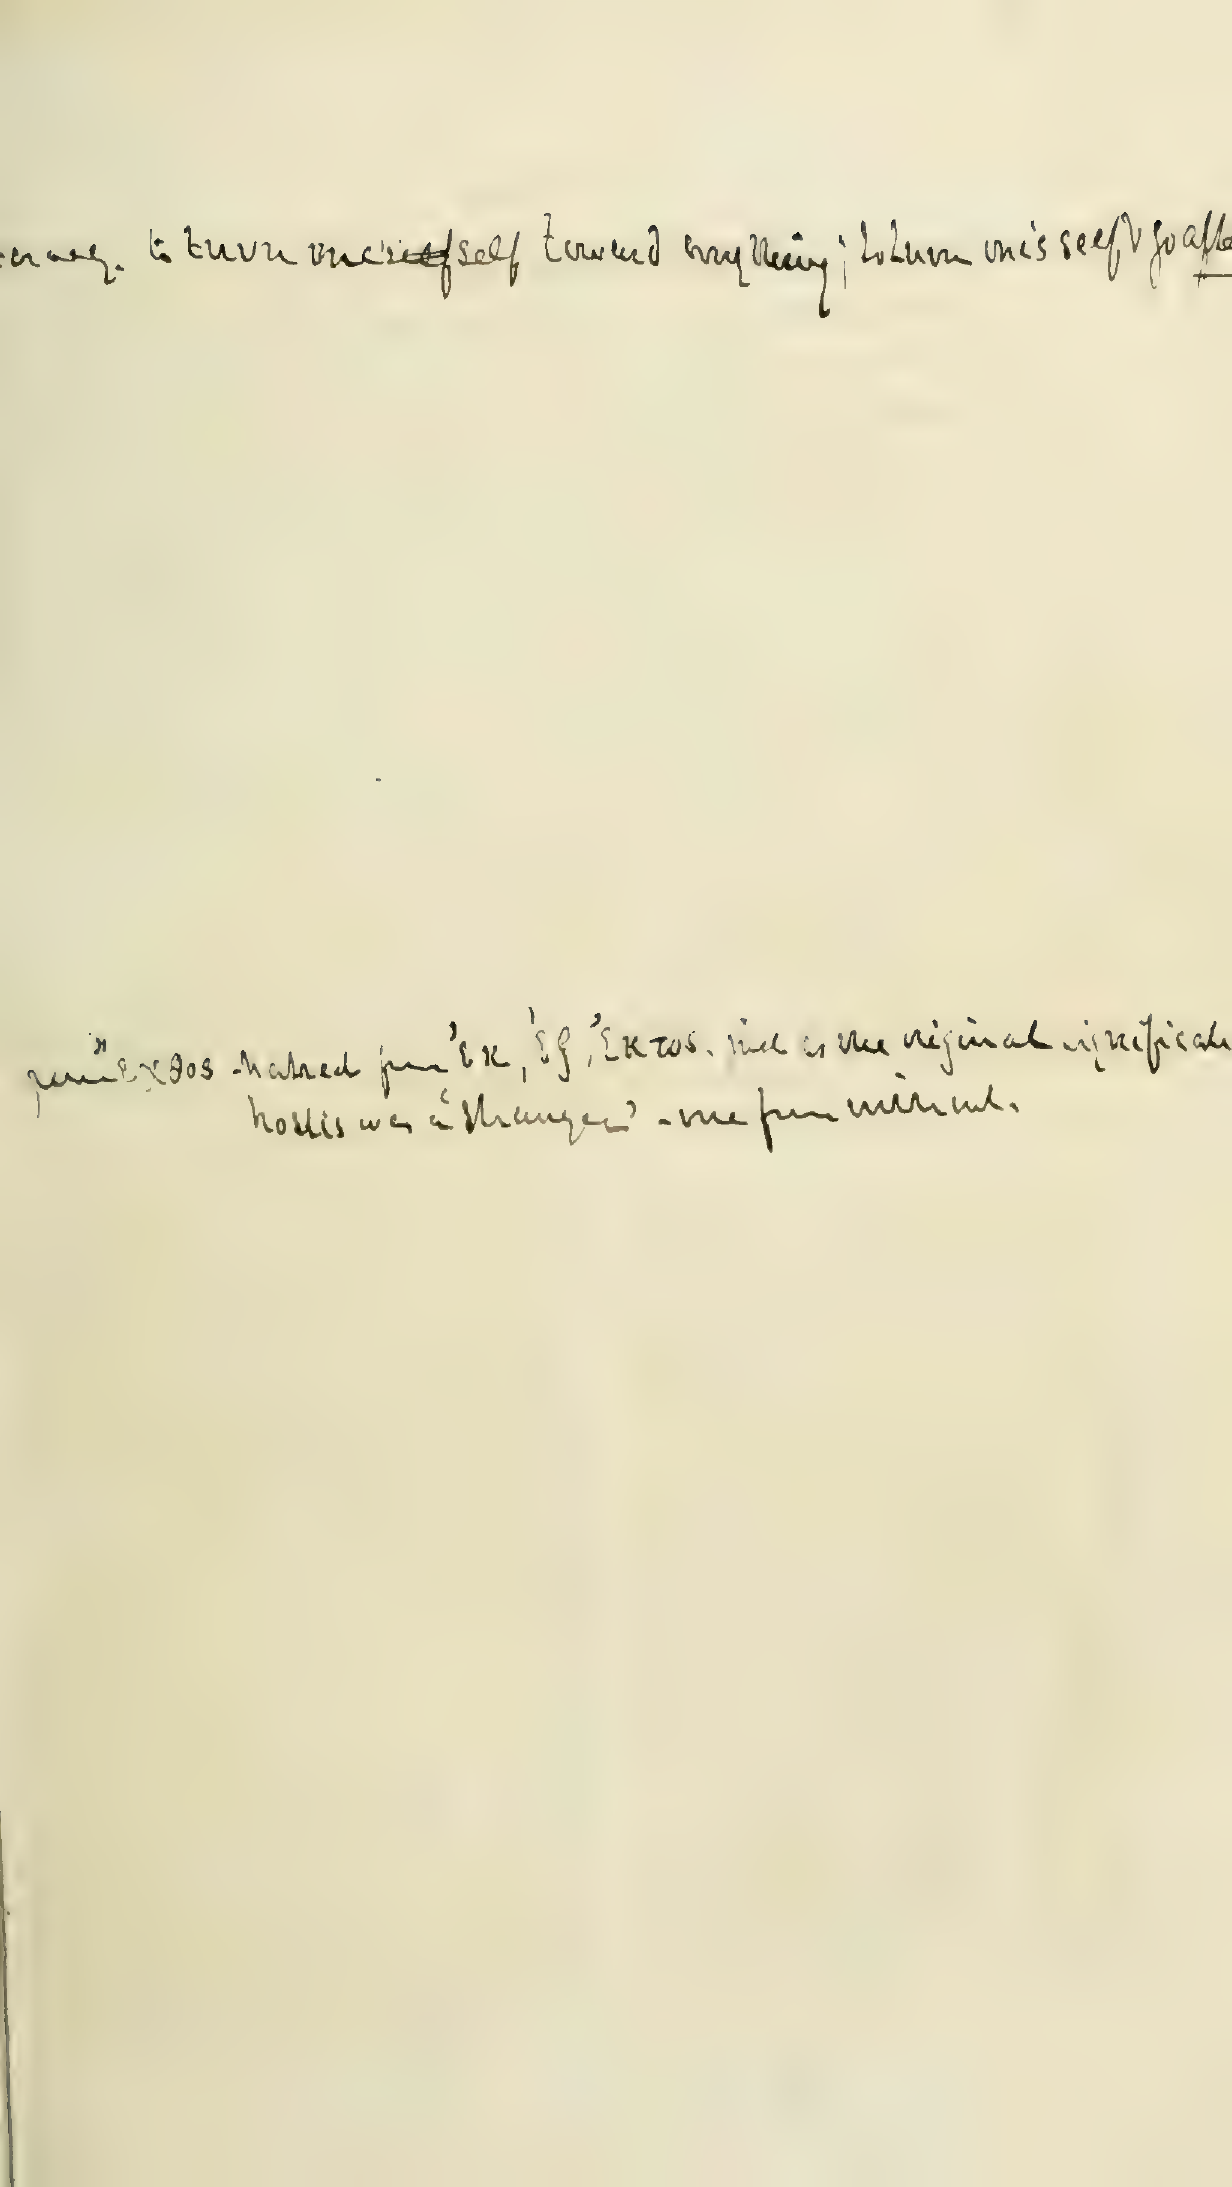 to turn one's self toward anything; to turn one's self & go after
from ἔχθος hatred from ἐκ, ἐξ, ἐκτος. just as the original significat
hostis was a "stranger" - one from without.